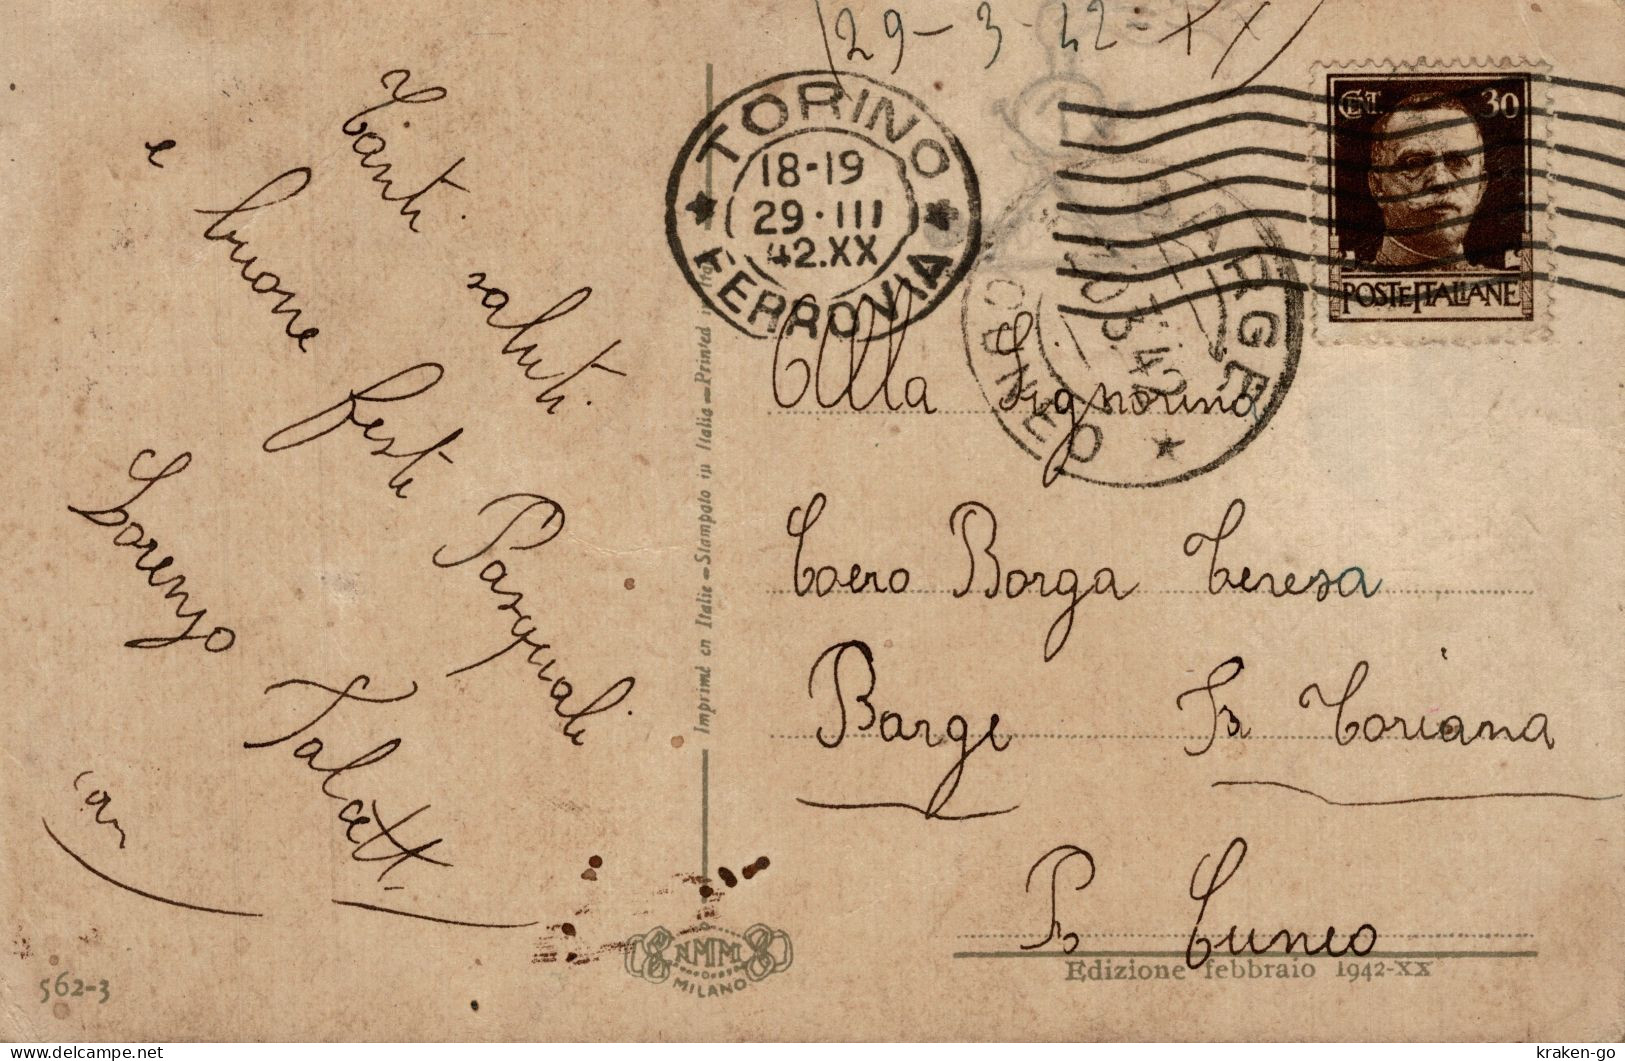 (29-3-42=XX)
TORINO
18-19
29·III
42.XX
FERROVIA
BARGE
CUNEO
CENT. 30
POSTE ITALIANE
Tanti saluti
e buone feste Pasquali
Lorenzo Talett
Alla Signorina
Coero Borga Teresa
Barge Fr Toriana
Pr Cuneo
Imprimé en Italie - Stampato in Italia - Printed in Italy
NMM
MILANO
562-3
Edizione febbraio 1942-XX
kraken-go